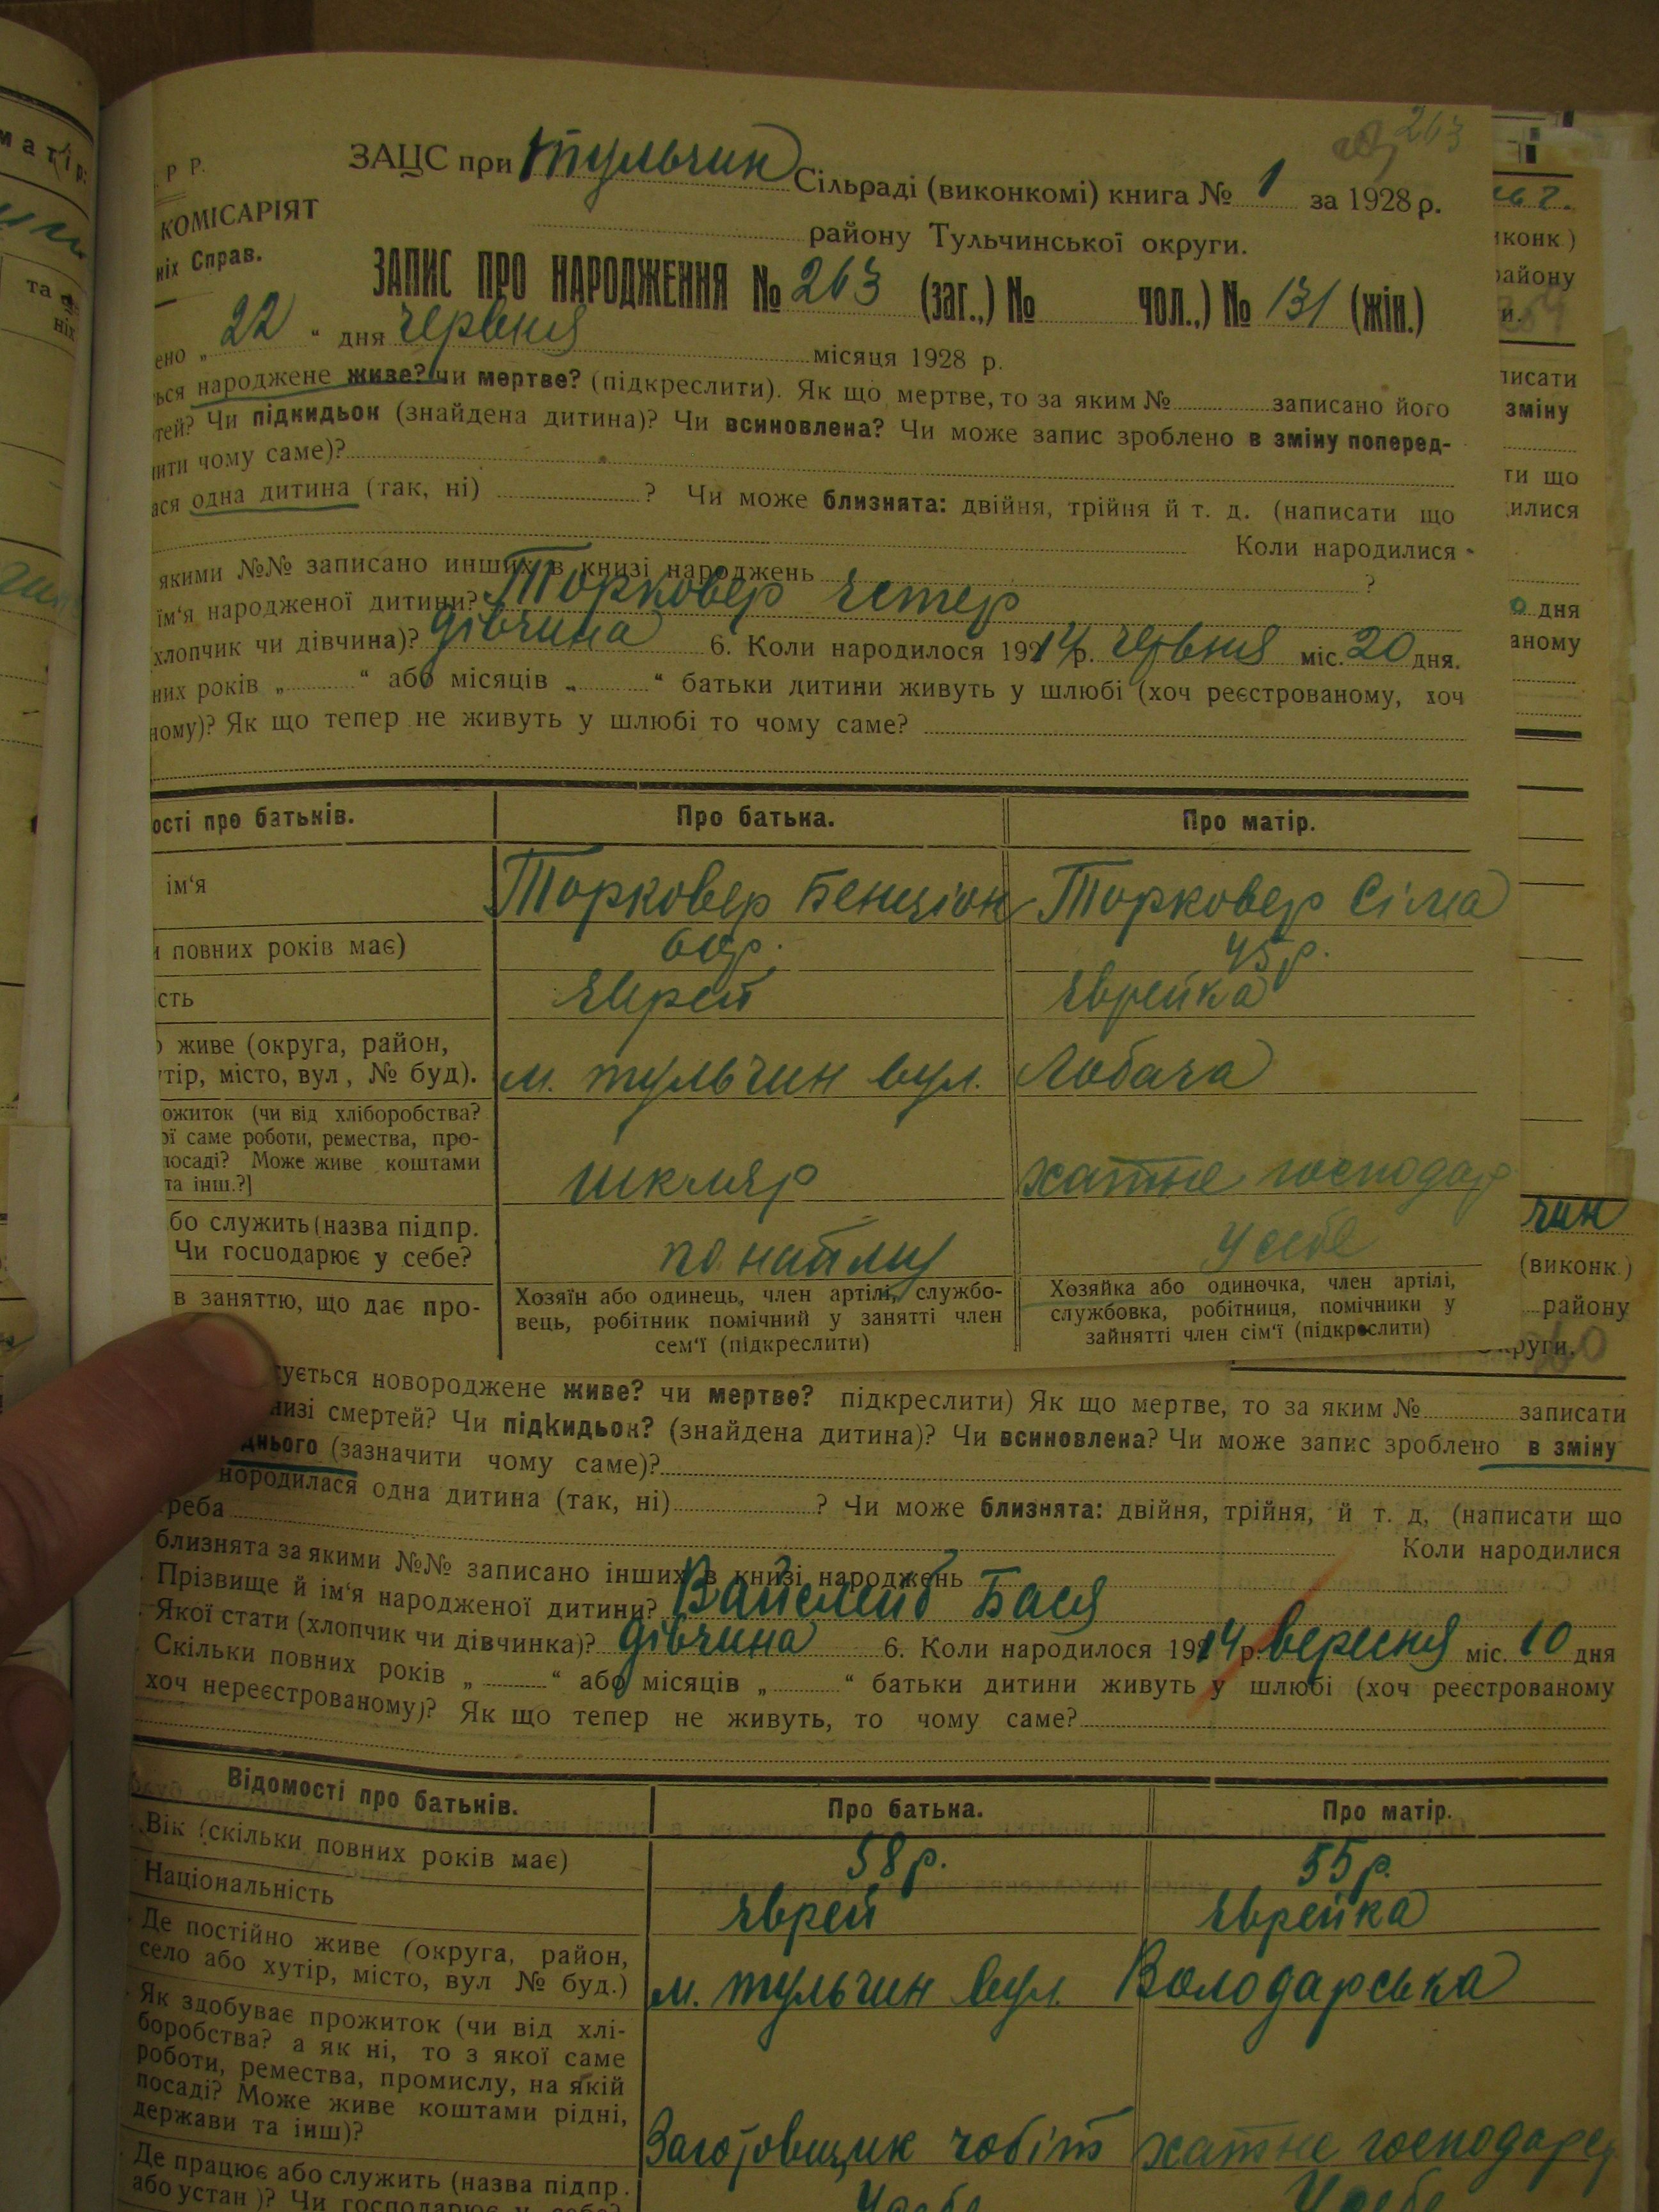 263
Р Р.
ЗАЦС при Тульчин Сільраді (виконкомі) книга № 1 за 1928 р.
КОМІСАРІЯТ
району Тульчинської округи.
ніх Справ.
ЗАПИС ПРО НАРОДЖЕННЯ № 263 (заг.,) № чол.,) № 131 (жін.)
ено „ 22 “ дня червня місяця 1928 р.
ься народжене живе? чи мертве? (підкреслити). Як що мертве, то за яким № записано його
тей? Чи підкидьок (знайдена дитина)? Чи всиновлена? Чи може запис зроблено в зміну поперед-
ити чому саме)?
ася одна дитина (так, ні) ? Чи може близнята: двійня, трійня й т. д. (написати що
Коли народилися
якими №№ записано инших в книзі народжень ?
ім‘я народженої дитини? Торковер Єстер
хлопчик чи дівчина)? дівчина 6. Коли народилося 1914 р. червня міс. 20 дня.
них років „ “ або місяців „ “ батьки дитини живуть у шлюбі (хоч реєстрованому, хоч
ному)? Як що тепер не живуть у шлюбі то чому саме?
ості про батьків. Про батька. Про матір.
ім‘я Торковер Бенціон Торковер Сіма
и повних років має) 60р. 45р.
сть Єврей Єврейка
о живе (округа, район,
утір, місто, вул, № буд). м. Тульчин вул. Лобача
ожиток (чи від хліборобства?
ої саме роботи, ремества, про-
посаді? Може живе коштами
та інш.?] шкляр хатнє господар
бо служить (назва підпр.
Чи господарює у себе? по найму У себе
в заняттю, що дає про-
Хозяїн або одинець, член артілі, службо-
вець, робітник помічний у занятті член
сем‘ї (підкреслити)
Хозяйка або одиночка, член артілі,
службовка, робітниця, помічники у
зайнятті член сім‘ї (підкреслити)
ується новороджене живе? чи мертве? підкреслити) Як що мертве, то за яким № записати
низі смертей? Чи підкидьок? (знайдена дитина)? Чи всиновлена? Чи може запис зроблено в зміну
днього (зазначити чому саме)?
нородилася одна дитина (так, ні) ? Чи може близнята: двійня, трійня, й т. д, (написати що
треба
Коли народилися
близнята за якими №№ записано інших в книзі народжень
Прізвище й ім‘я народженої дитини? Вайслейб Бася
Якої стати (хлопчик чи дівчинка)? дівчина 6. Коли народилося 1914 р. вересня міс. 10 дня
Скільки повних років „ “ або місяців „ “ батьки дитини живуть у шлюбі (хоч реєстрованому
хоч нереєстрованому)? Як що тепер не живуть, то чому саме?
Відомості про батьків. Про батька. Про матір.
Вік (скільки повних років має) 58р. 55р.
Національність Єврей Єврейка
Де постійно живе (округа, район,
село або хутір, місто, вул № буд.) м. Тульчин вул. Володарська
Як здобуває прожиток (чи від хлі-
боробства? а як ні, то з якої саме
роботи, ремества, промислу, на якій
посаді? Може живе коштами рідні,
держави та інш)? Заготовщик чобіт хатнє господар
Де працює або служить (назва підпр.
або устан)? Чи господарює у себе? У себе У себе
матір:
та
ніх
иконк.)
району
и.
писати
зміну
ти що
илися
о дня
аному
чин
(виконк.)
району
округи.